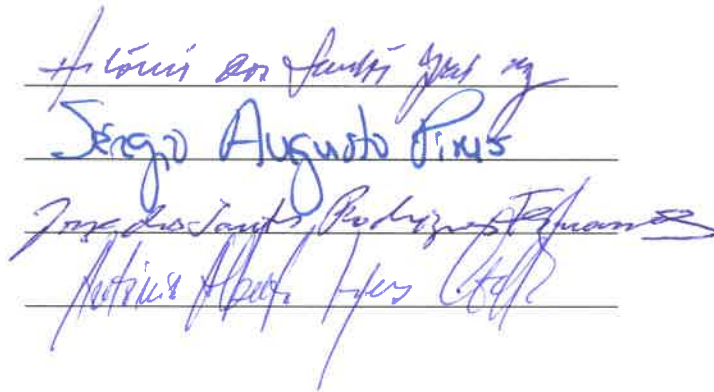 António dos Santos
Sérgio Augusto Pires
José dos Santos Rodrigues Fernandes
António Alberto